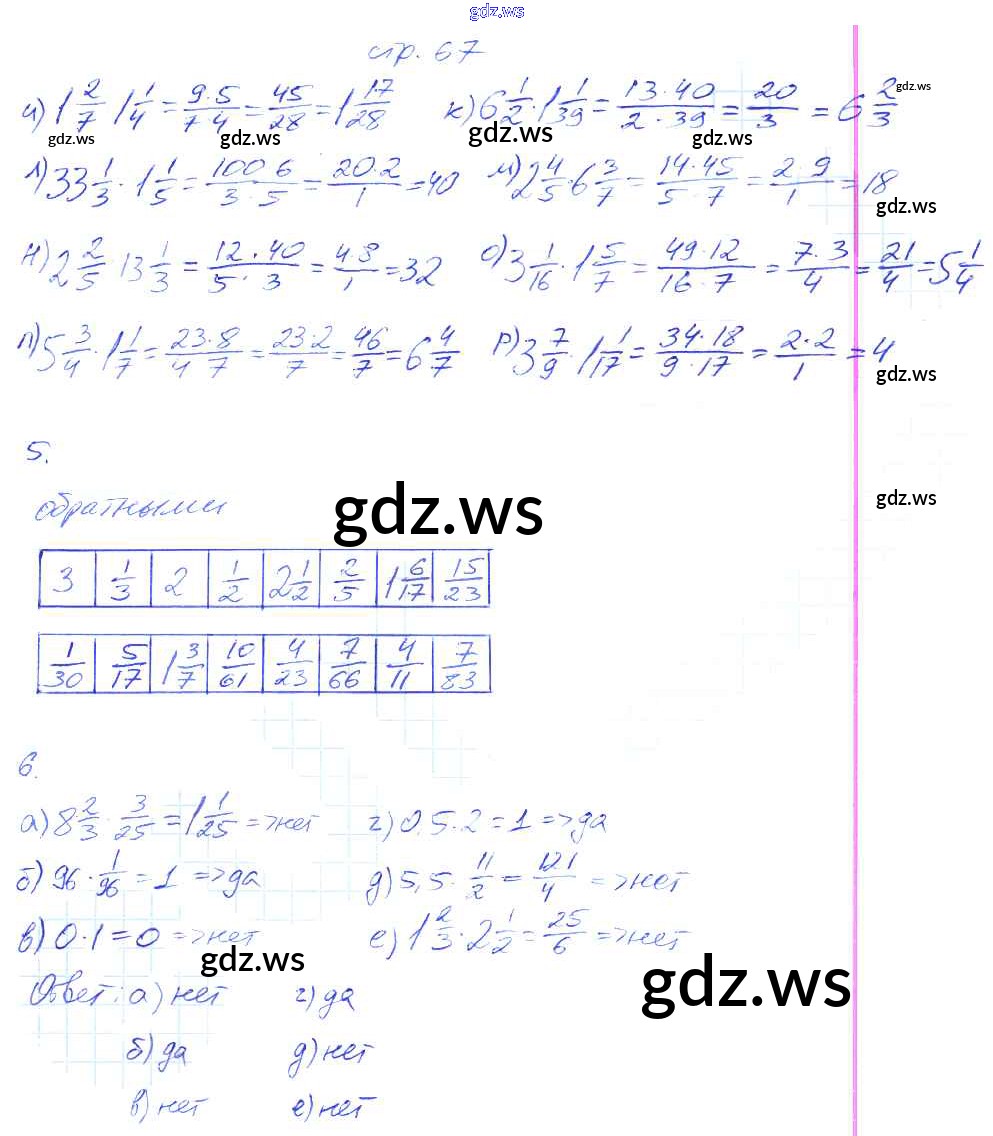 gdz.ws
стр. 67
и) 1 2/7 · 1 1/4 = 9·5/7·4 = 45/28 = 1 17/28 к) 6 1/2 · 1 1/39 = 13·40/2·39 = 20/3 = 6 2/3 gdz.ws
gdz.ws gdz.ws
л) 33 1/3 · 1 1/5 = 100·6/3·5 = 20·2/1 = 40 м) 2 4/5 · 6 3/7 = 14·45/5·7 = 2·9/1 = 18
gdz.ws
н) 2 2/5 · 13 1/3 = 12·40/5·3 = 4·8/1 = 32 о) 3 1/16 · 1 5/7 = 49·12/16·7 = 7·3/4 = 21/4 = 5 1/4
п) 5 3/4 · 1 1/7 = 23·8/4·7 = 23·2/7 = 46/7 = 6 4/7 р) 3 7/9 · 1 1/17 = 34·18/9·17 = 2·2/1 = 4
gdz.ws
5.
обратными gdz.ws gdz.ws
3 1/3 2 1/2 2 1/2 2/5 1 6/17 15/23
1/30 5/17 1 3/7 10/61 4/23 7/66 4/11 7/83
6.
а) 8 2/3 · 3/25 = 1 1/25 => нет г) 0,5·2 = 1 => да
б) 96 · 1/96 = 1 => да д) 5,5 · 11/2 = 121/4 => нет
в) 0·1 = 0 => нет е) 1 2/3 · 2 1/2 = 25/6 => нет
gdz.ws
Ответ: а) нет г) да gdz.ws
б) да д) нет
в) нет е) нет